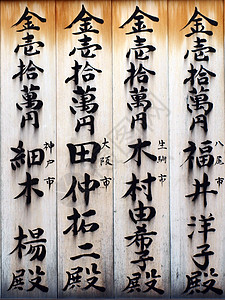 金壱拾萬円 八尾市 福井洋子殿
金壱拾萬円 生駒市 木村由希子殿
金壱拾萬円 大阪市 田仲拓二殿
金壱拾萬円 神戸市 細木楊殿